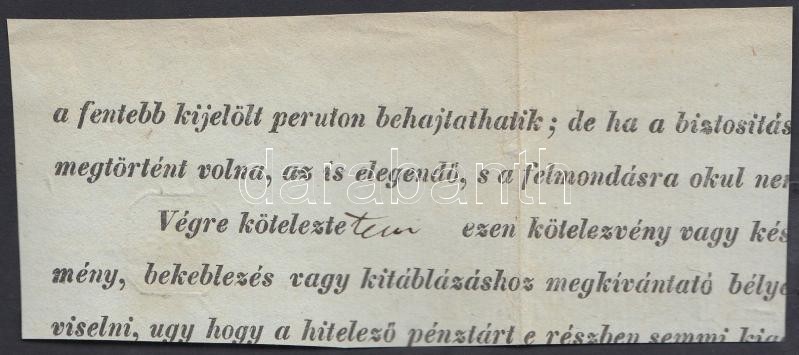 a fentebb kijelölt peruton behajtathatik; de ha a biztositás
megtörtént volna, az is elegendő, s a felmondásra okul nem
darabanth
Végre kötelezte tem ezen kötelezvény vagy kés
mény, bekeblezés vagy kitáblázáshoz megkívántató bélye
viselni, ugy hogy a hitelező pénztárt e részben semmi